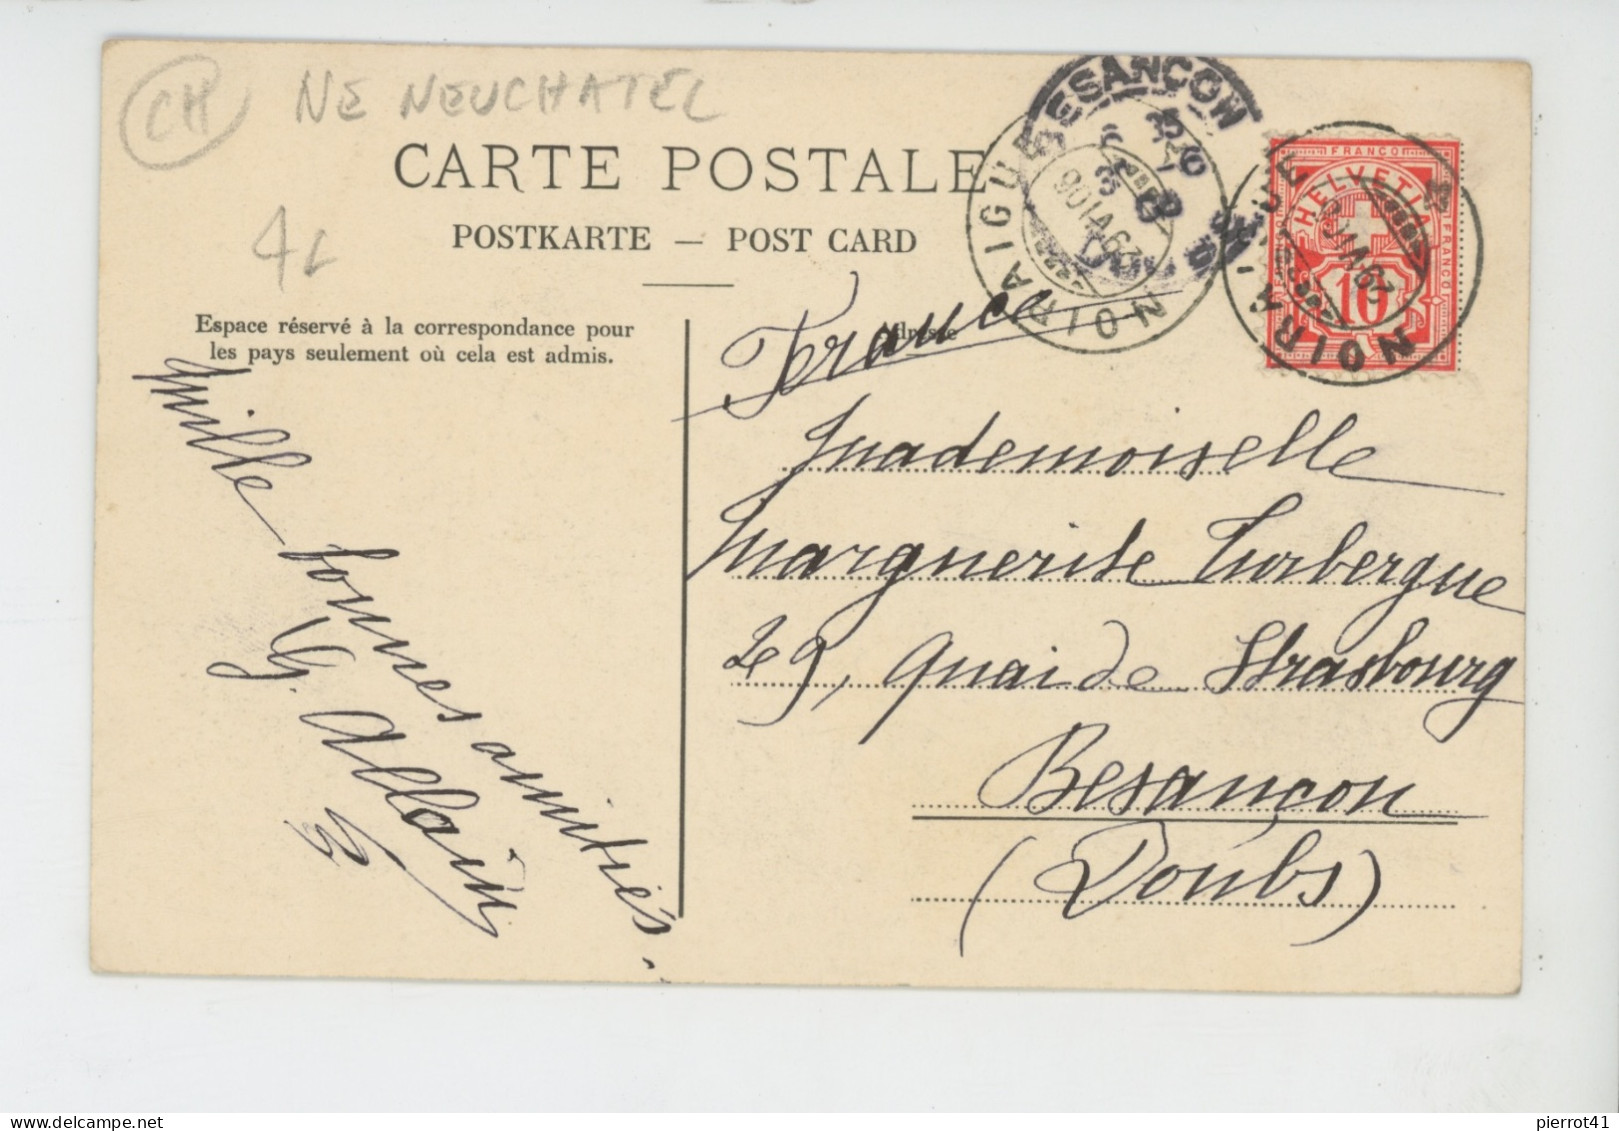 CH NE NEUCHATEL
4
CARTE POSTALE
POSTKARTE — POST CARD
Espace réservé à la correspondance pour
les pays seulement où cela est admis.
Adresse
France
Mademoiselle
Marguerite Turbergue
29, Quai de Strasbourg
Besançon
(Doubs)
Mille bonnes amitiés.
G. Allain
BESANÇON
NOIRAIGUE
29 VI 06
NOIRAIGUE
29 VI
FRANCO
HELVETIA
FRANCO
10
pierrot41